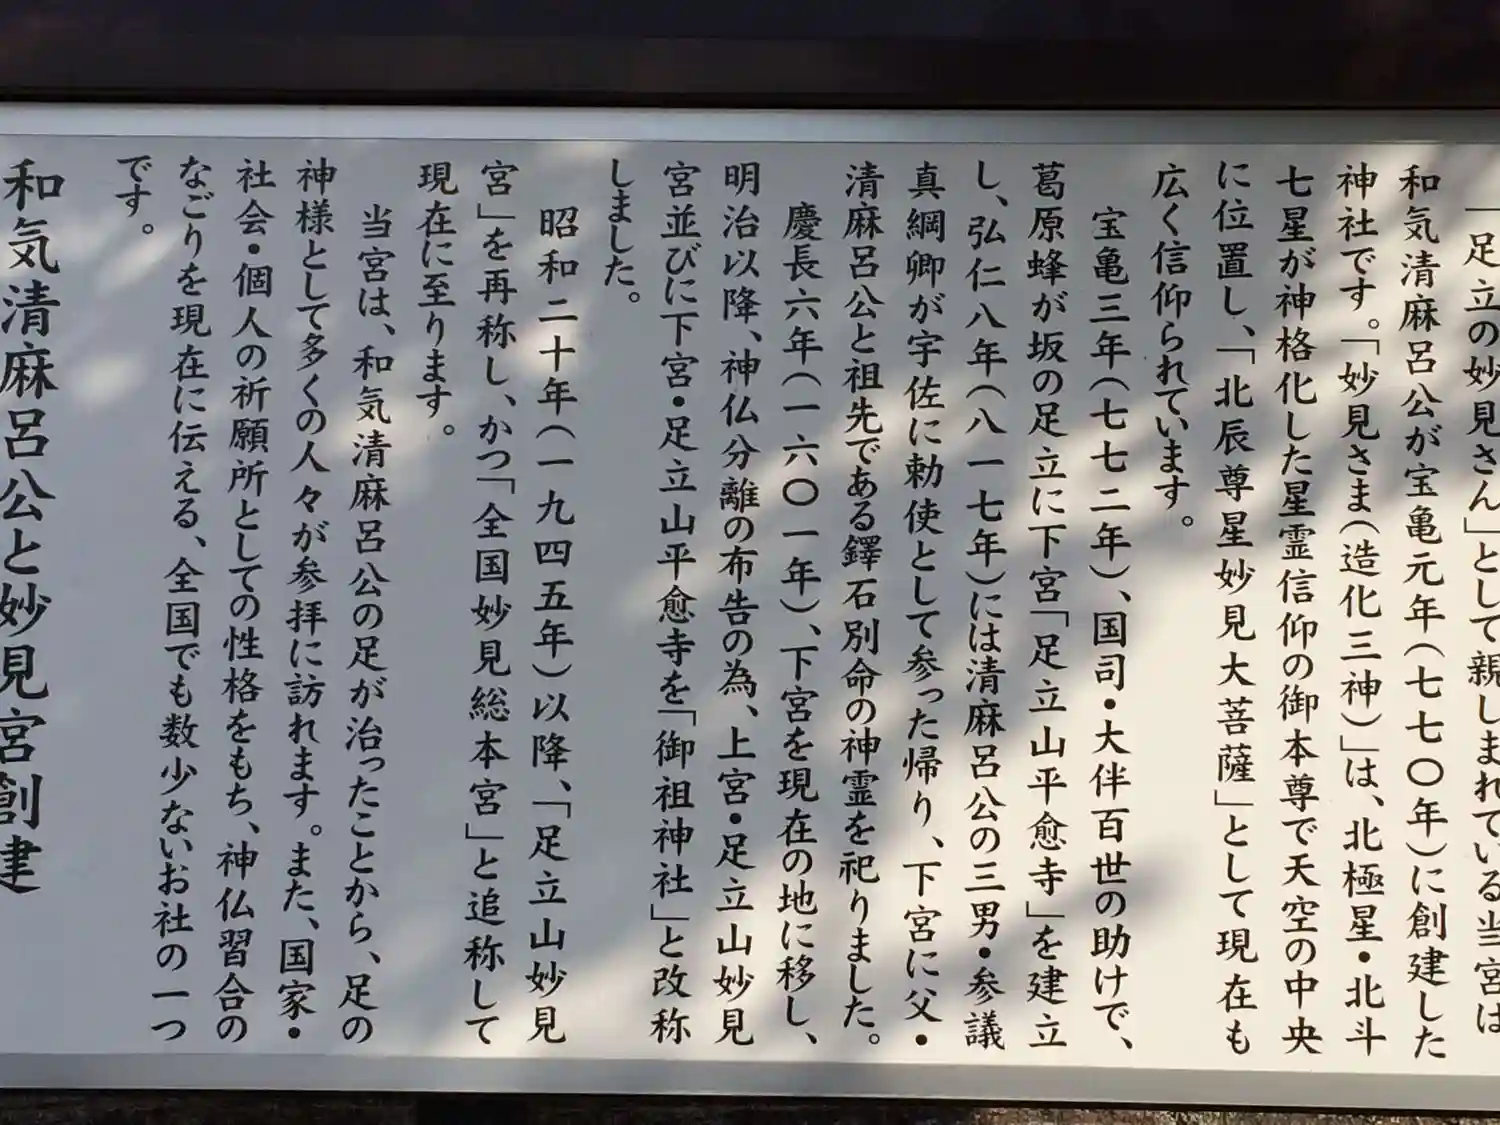 「足立の妙見さん」として親しまれている当宮は
和気清麻呂公が宝亀元年(七七〇年)に創建した
神社です。「妙見さま(造化三神)」は、北極星・北斗
七星が神格化した星霊信仰の御本尊で天空の中央
に位置し、「北辰尊星妙見大菩薩」として現在も
広く信仰られています。
宝亀三年(七七二年)、国司・大伴百世の助けで、
葛原蜂が坂の足立に下宮「足立山平愈寺」を建立
し、弘仁八年(八一七年)には清麻呂公の三男・参議
真綱卿が宇佐に勅使として参った帰り、下宮に父・
清麻呂公と祖先である鐸石別命の神霊を祀りました。
慶長六年(一六〇一年)、下宮を現在の地に移し、
明治以降、神仏分離の布告の為、上宮・足立山妙見
宮並びに下宮・足立山平愈寺を「御祖神社」と改称
しました。
昭和二十年(一九四五年)以降、「足立山妙見
宮」を再称し、かつ「全国妙見総本宮」と追称して
現在に至ります。
当宮は、和気清麻呂公の足が治ったことから、足の
神様として多くの人々が参拝に訪れます。また、国家・
社会・個人の祈願所としての性格をもち、神仏習合の
なごりを現在に伝える、全国でも数少ないお社の一つ
です。
和気清麻呂公と妙見宮創建